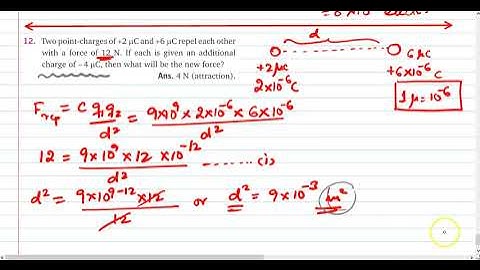 12. Two point-charges of +2 μC and +6 μC repel each other
with a force of 12 N. If each is given an additional
charge of – 4 μC, then what will be the new force?
Ans. 4 N (attraction).
d
+2 μC
2×10⁻⁶C
6 μC
+6×10⁻⁶ C
1 μ = 10⁻⁶
F = C q₁q₂ / d² = 9×10⁹ × 2×10⁻⁶ × 6×10⁻⁶ / d²
12 = 9×10⁹ × 12 × 10⁻¹² / d² ........ (i)
d² = 9×10⁹⁻¹² × 12 / 12 or d² = 9×10⁻³ m²